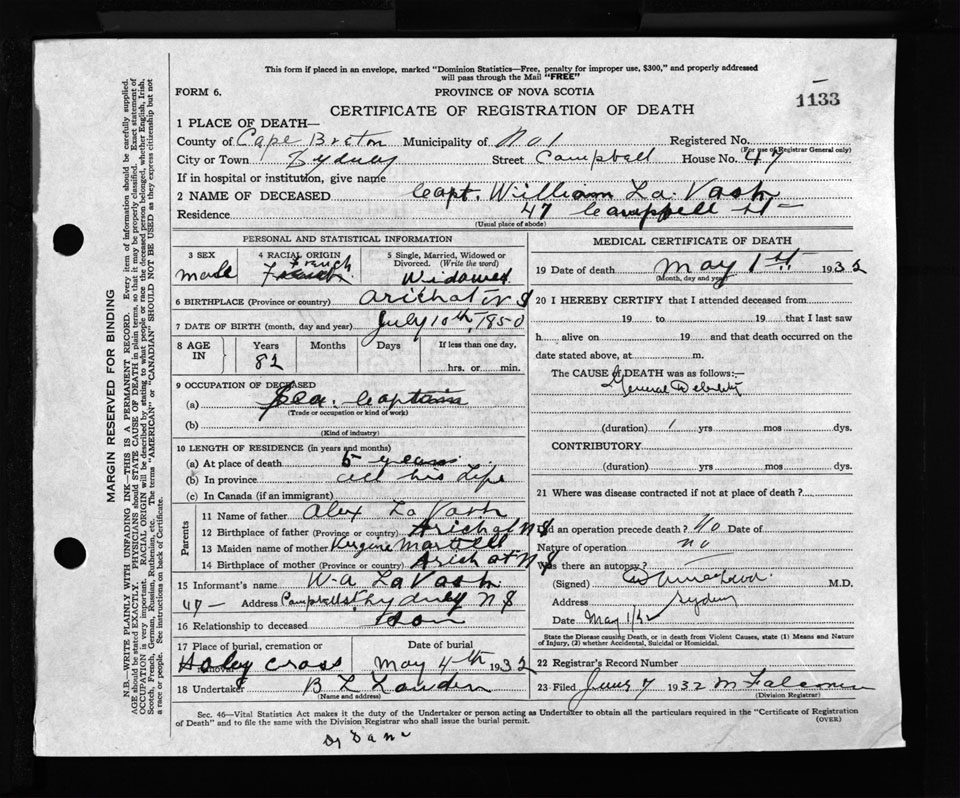 This form if placed in an envelope, marked "Dominion Statistics—Free, penalty for improper use, $300," and properly addressed
will pass through the Mail "FREE"
FORM 6.
PROVINCE OF NOVA SCOTIA
1133
CERTIFICATE OF REGISTRATION OF DEATH
1 PLACE OF DEATH—
County of Cape Breton Municipality of No 1 Registered No.
(For use of Registrar General only)
City or Town Sydney Street Campbell House No. 47
If in hospital or institution, give name
2 NAME OF DECEASED Capt. William La Vash
Residence 47 Campbell St
(Usual place of abode)
PERSONAL AND STATISTICAL INFORMATION
3 SEX
male
4 RACIAL ORIGIN
French
5 Single, Married, Widowed or Divorced. (Write the word)
Widowed
6 BIRTHPLACE (Province or country) Arichat N S
7 DATE OF BIRTH (month, day and year) July 10th, 1850
8 AGE IN
Years
82
Months
Days
If less than one day,
hrs. or min.
9 OCCUPATION OF DECEASED
(a) Sea Captain
(Trade or occupation or kind of work)
(b)
(Kind of industry)
10 LENGTH OF RESIDENCE (in years and months)
(a) At place of death 5 years
(b) In province all his Life
(c) In Canada (if an immigrant)
Parents
11 Name of father Alex La Vash
12 Birthplace of father (Province or country) Arichat N S
13 Maiden name of mother Martell
14 Birthplace of mother (Province or country) Arichat N S
15 Informant's name W-A LaVash
47— Address Campbell St Sydney N S
16 Relationship to deceased Son
17 Place of burial, cremation or
removal
Holey Cross
Date of burial
May 4th 1932
18 Undertaker B L
(Name and address)
MEDICAL CERTIFICATE OF DEATH
19 Date of death May 1st 1932
(Month, day and year)
20 I HEREBY CERTIFY that I attended deceased from
19 to 19 that I last saw
h alive on 19 and that death occurred on the
date stated above, at m.
The CAUSE OF DEATH was as follows:—
General Debility
(duration) 1 yrs mos dys.
CONTRIBUTORY.
(duration) yrs mos dys.
21 Where was disease contracted if not at place of death?
Did an operation precede death? No Date of
Nature of operation no
Was there an autopsy?
(Signed) M.D.
Address Sydney
Date May 1/32
State the Disease causing Death, or in death from Violent Causes, state (1) Means and Nature
of Injury, (2) whether Accidental, Suicidal or Homicidal.
22 Registrar's Record Number
23 Filed June 7 1932
(Division Registrar)
Sec. 46—Vital Statistics Act makes it the duty of the Undertaker or person acting as Undertaker to obtain all the particulars required in the "Certificate of Registration
of Death" and to file the same with the Division Registrar who shall issue the burial permit.
(OVER)
MARGIN RESERVED FOR BINDING
N.B.—WRITE PLAINLY WITH UNFADING INK—THIS IS A PERMANENT RECORD. Every item of information should be carefully supplied.
AGE should be stated EXACTLY. PHYSICIANS should STATE CAUSE OF DEATH in plain terms, so that it may be properly classified. Exact statement of
OCCUPATION is very important. RACIAL ORIGIN will be described by stating to what people or race the deceased person belonged, whether English, Irish,
Scotch, French, German, Russian, Ruthenian, etc. The terms "AMERICAN" or "CANADIAN" SHOULD NOT BE USED as they express citizenship but not
a race or people. See instructions on back of Certificate.